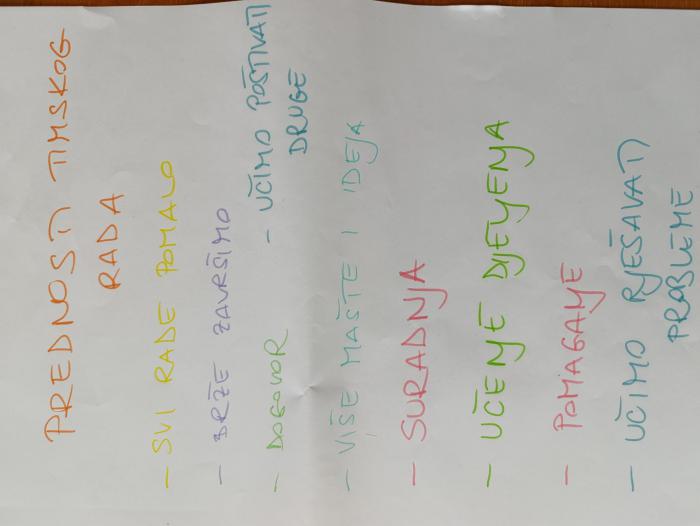 PREDNOSTI TIMSKOG
RADA
- SVI RADE POMALO
- BRŽE ZAVRŠIMO
- UČIMO POŠTIVATI
DRUGE
- DOGOVOR
- VIŠE MAŠTE I IDEJA
- SURADNJA
- UČENJE DIJELJENJA
- POMAGANJE
- UČIMO RJEŠAVATI
PROBLEME